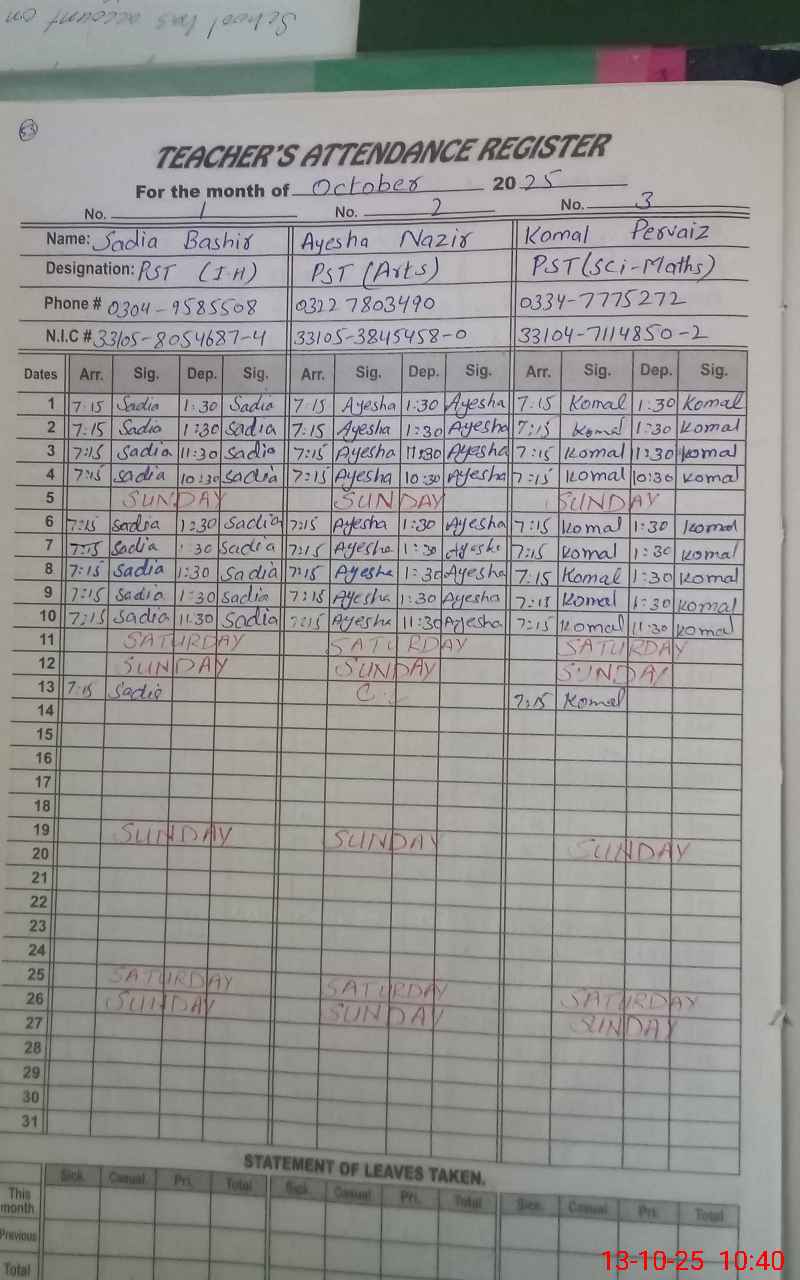 School has account on
53
TEACHER'S ATTENDANCE REGISTER
For the month of October 2025
No. 1 No. 2 No. 3
Name: Sadia Bashir Ayesha Nazir Komal Pervaiz
Designation: PST (I-H) PST (Arts) PST (Sci-Maths)
Phone # 0304-9585508 0322 7803490 0334-7775272
N.I.C # 33105-8054687-4 33105-3845458-0 33104-7114850-2
Dates Arr. Sig. Dep. Sig. Arr. Sig. Dep. Sig. Arr. Sig. Dep. Sig.
1 7:15 Sadia 1:30 Sadia 7:15 Ayesha 1:30 Ayesha 7:15 Komal 1:30 Komal
2 7:15 Sadia 1:30 Sadia 7:15 Ayesha 1:30 Ayesha 7:15 Komal 1:30 Komal
3 7:15 Sadia 11:30 Sadia 7:15 Ayesha 11:30 Ayesha 7:15 Komal 11:30 Komal
4 7:15 Sadia 10:30 Sadia 7:15 Ayesha 10:30 Ayesha 7:15 Komal 10:30 Komal
5 SUNDAY SUNDAY SUNDAY
6 7:15 Sadia 1:30 Sadia 7:15 Ayesha 1:30 Ayesha 7:15 Komal 1:30 Komal
7 7:15 Sadia 1:30 Sadia 7:15 Ayesha 1:30 Ayesha 7:15 Komal 1:30 Komal
8 7:15 Sadia 1:30 Sadia 7:15 Ayesha 1:30 Ayesha 7:15 Komal 1:30 Komal
9 7:15 Sadia 1:30 Sadia 7:15 Ayesha 1:30 Ayesha 7:15 Komal 1:30 Komal
10 7:15 Sadia 11:30 Sadia 7:15 Ayesha 11:30 Ayesha 7:15 Komal 11:30 Komal
11 SATURDAY SATURDAY SATURDAY
12 SUNDAY SUNDAY SUNDAY
13 7:15 Sadia C.L 7:15 Komal
14
15
16
17
18
19 SUNDAY SUNDAY SUNDAY
20
21
22
23
24
25 SATURDAY SATURDAY SATURDAY
26 SUNDAY SUNDAY SUNDAY
27
28
29
30
31
STATEMENT OF LEAVES TAKEN.
Sick. Casual. Pri. Total Sick. Casual. Pri. Total Sick. Casual. Pri. Total
This month
Previous
Total
13-10-25 10:40